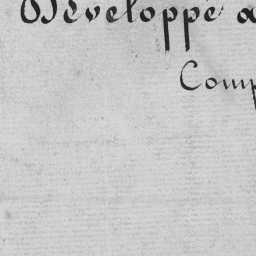 Développé a
Comp